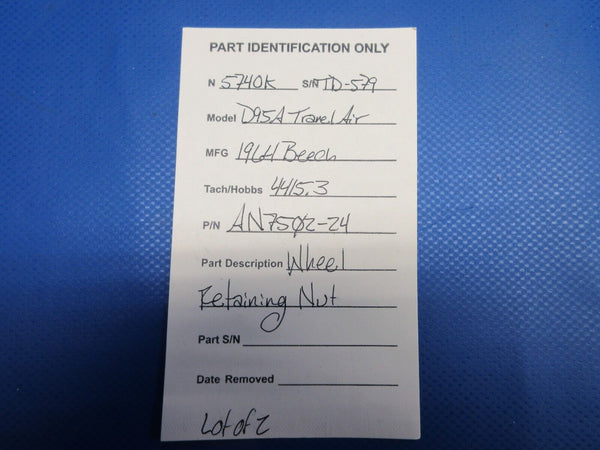 PART IDENTIFICATION ONLY
N 5740K S/N TD-579
Model D95A Travel Air
MFG 1964 Beech
Tach/Hobbs 4415.3
P/N AN7502-24
Part Description Wheel
Retaining Nut
Part S/N
Date Removed
Lot of 2